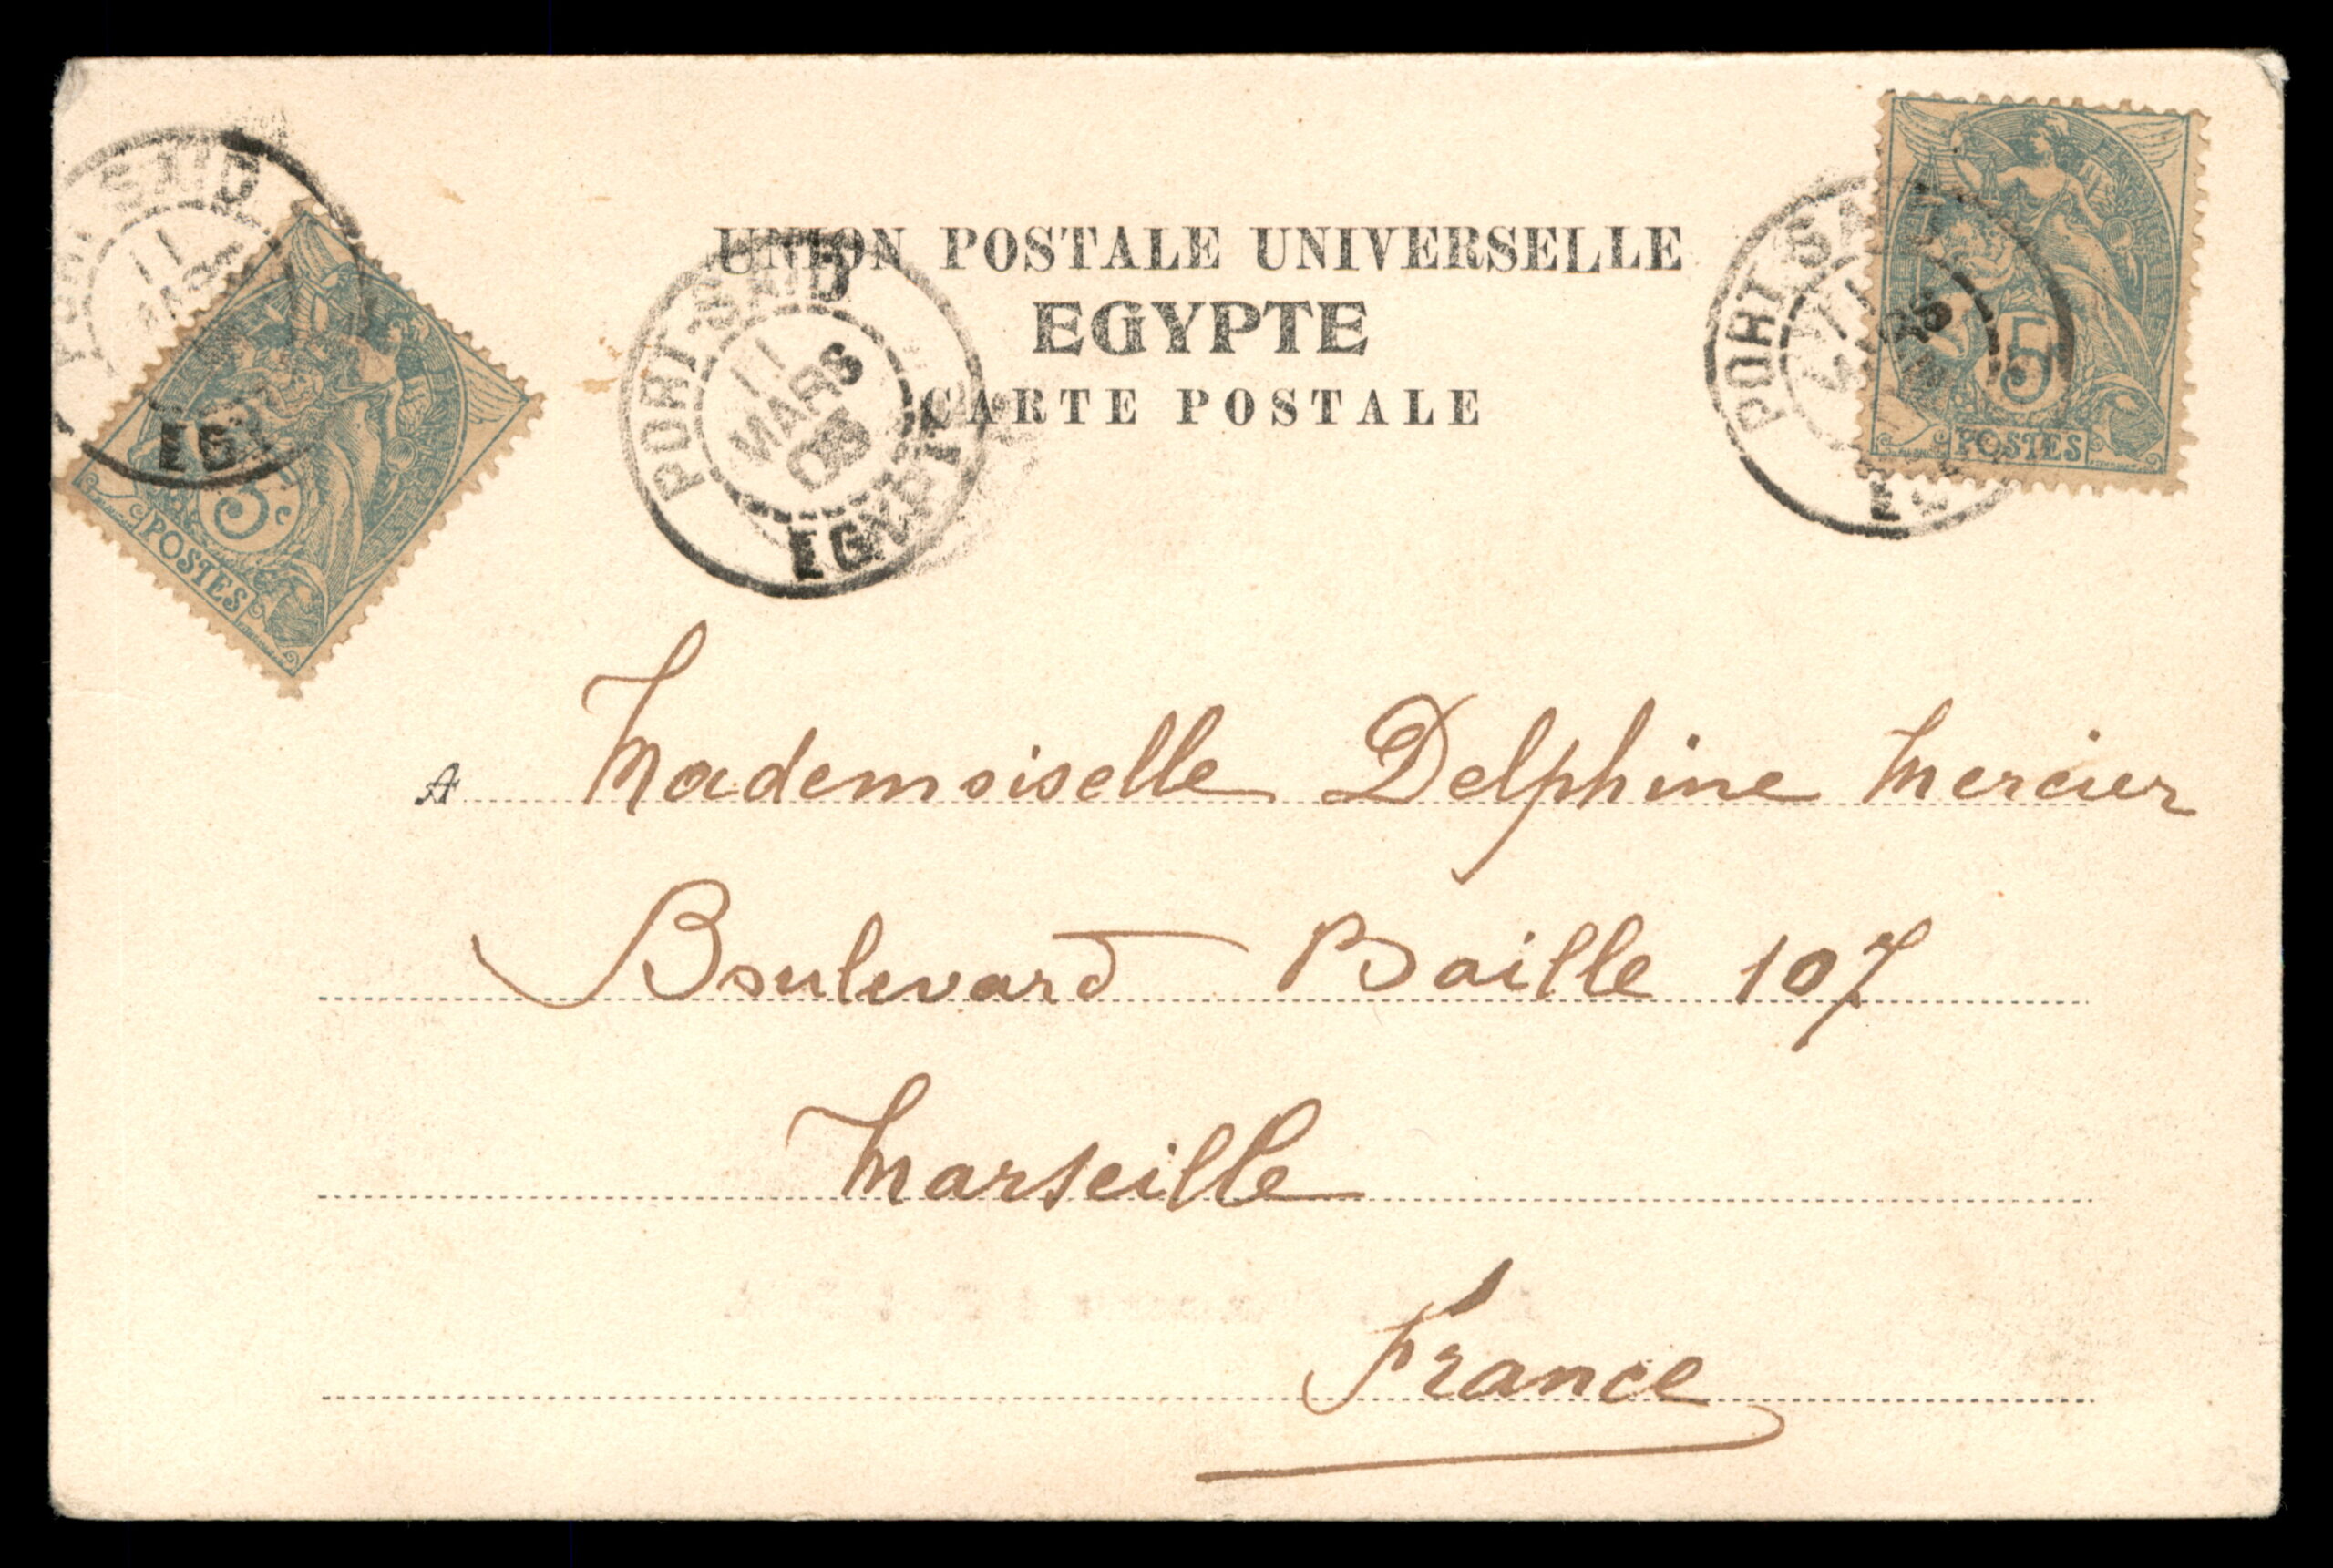 UNION POSTALE UNIVERSELLE
EGYPTE
CARTE POSTALE
PORT-SAID
11
MARS
03
EGYPTE
PORT SAID
11
EG
5c
POSTES
PORT-SA
11
5
POSTES
A Mademoiselle Delphine Mercier
Boulevard Baille 107
Marseille
France